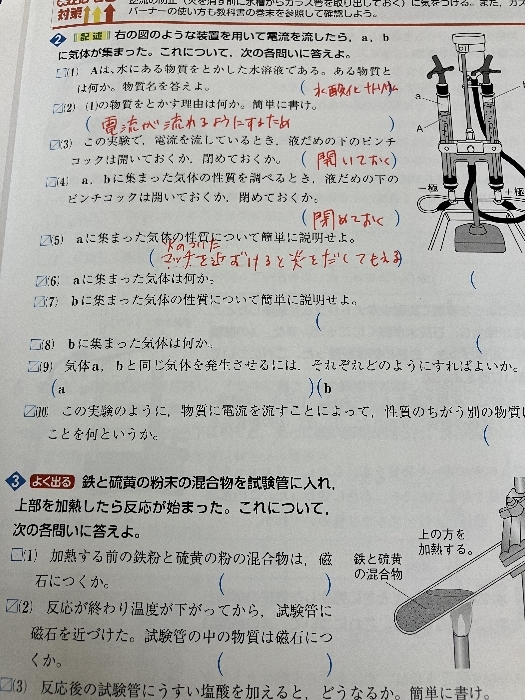 対策
バーナーの使い方も教科書の巻末を参照して確認しよう。
2 記述 右の図のような装置を用いて電流を流したら，a，b
に気体が集まった。これについて，次の各問いに答えよ。
(1) Aは，水にある物質をとかした水溶液である。ある物質と
は何か。物質名を答えよ。 (水酸化ナトリウム)
(2) (1)の物質をとかす理由は何か。簡単に書け。
(電流が流れるようにするため)
(3) この実験で，電流を流しているとき，液だめの下のピンチ
コックは開いておくか，閉めておくか。 (開いておく)
(4) a，bに集まった気体の性質を調べるとき，液だめの下の
ピンチコックは開いておくか，閉めておくか。
(閉めておく)
(5) aに集まった気体の性質について簡単に説明せよ。
火のつけた
(マッチを近ずけると炎をだしてもえる)
(6) aに集まった気体は何か。 (
(7) bに集まった気体の性質について簡単に説明せよ。
(
(8) bに集まった気体は何か。 (
(9) 気体a，bと同じ気体を発生させるには，それぞれどのようにすればよいか。
(a )(b
(10) この実験のように，物質に電流を流すことによって，性質のちがう別の物質に
ことを何というか。 (
a
A
－極
＋極
3 よく出る 鉄と硫黄の粉末の混合物を試験管に入れ，
上部を加熱したら反応が始まった。これについて，
次の各問いに答えよ。
(1) 加熱する前の鉄粉と硫黄の粉の混合物は，磁
石につくか。 ( )
(2) 反応が終わり温度が下がってから，試験管に
磁石を近づけた。試験管の中の物質は磁石につ
くか。 ( )
(3) 反応後の試験管にうすい塩酸を加えると，どうなるか。簡単に書け。
上の方を
加熱する。
鉄と硫黄
の混合物